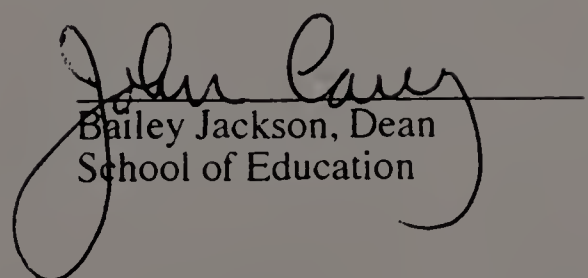 John Carey
Bailey Jackson, Dean
School of Education